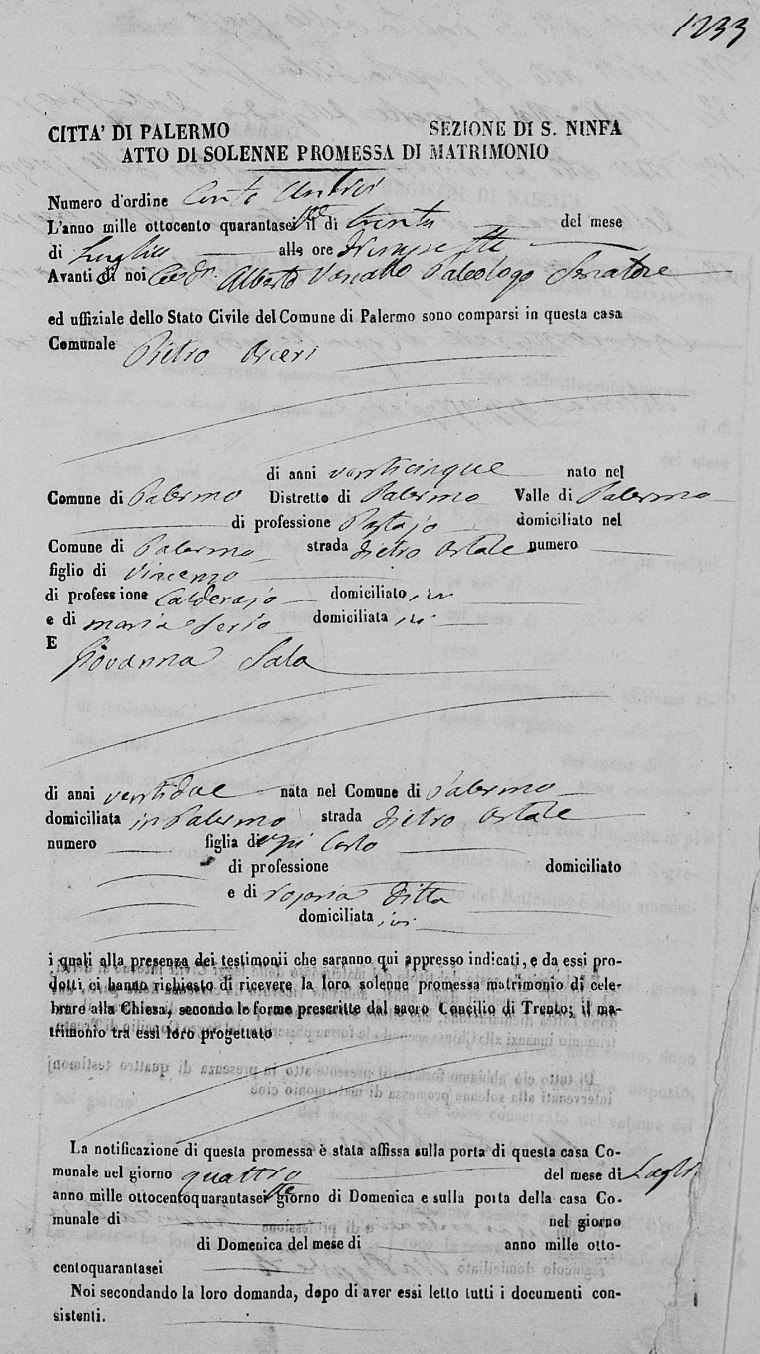 1233
CITTA' DI PALERMO SEZIONE DI S. NINFA
ATTO DI SOLENNE PROMESSA DI MATRIMONIO
Numero d'ordine Cento
L'anno mille ottocento quarantasei il di trenta del mese
di Luglio alle ore
Avanti di noi Alberto Paleologo Senatore
ed uffiziale dello Stato Civile del Comune di Palermo sono comparsi in questa casa
Comunale Pietro Arceri
di anni venticinque nato nel
Comune di Palermo Distretto di Palermo Valle di Palermo
di professione Pastajo domiciliato nel
Comune di Palermo strada dietro Ostale numero
figlio di Vincenzo
di professione Calderajo domiciliato ivi
e di maria Serio domiciliata ivi
E
Giovanna Sala
di anni ventidue nata nel Comune di Palermo
domiciliata in Palermo strada dietro Ostale
numero figlia di Carlo
di professione domiciliato
e di rosaria Ditta
domiciliata ivi
i quali alla presenza dei testimonii che saranno qui appresso indicati, e da essi pro-
dotti ci hanno richiesto di ricevere la loro solenne promessa matrimonio di cele-
brare alla Chiesa, secondo le forme prescritte dal sacro Concilio di Trento; il ma-
trimonio tra essi loro progettato
La notificazione di questa promessa è stata affissa sulla porta di questa casa Co-
munale nel giorno quattro del mese di Luglio
anno mille ottocentoquarantasei giorno di Domenica e sulla porta della casa Co-
munale di nel giorno
di Domenica del mese di anno mille otto-
centoquarantasei
Noi secondando la loro domanda, dopo di aver essi letto tutti i documenti con-
sistenti.